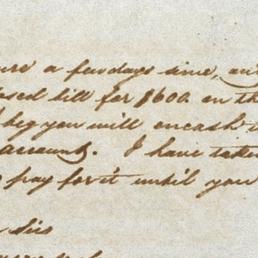 a few days since, an
bill for $600. on th
beg you will encash
account. I have taken
pay for it until you